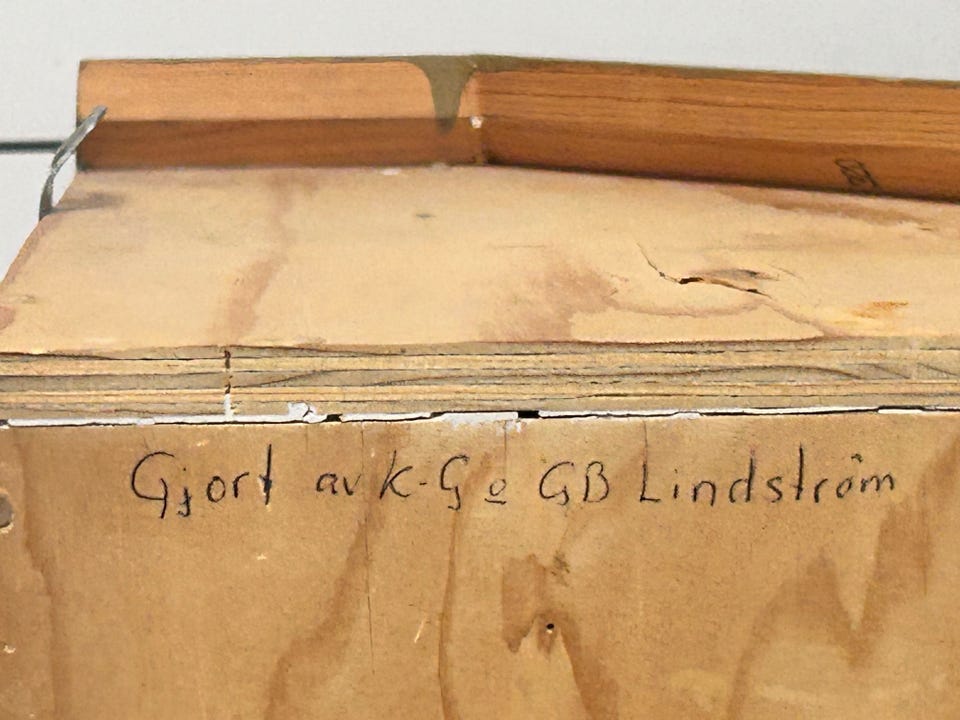 Gjort av K-G o GB Lindström